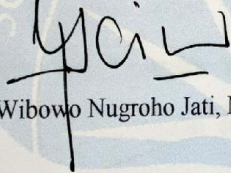 Wibowo Nugroho Jati,